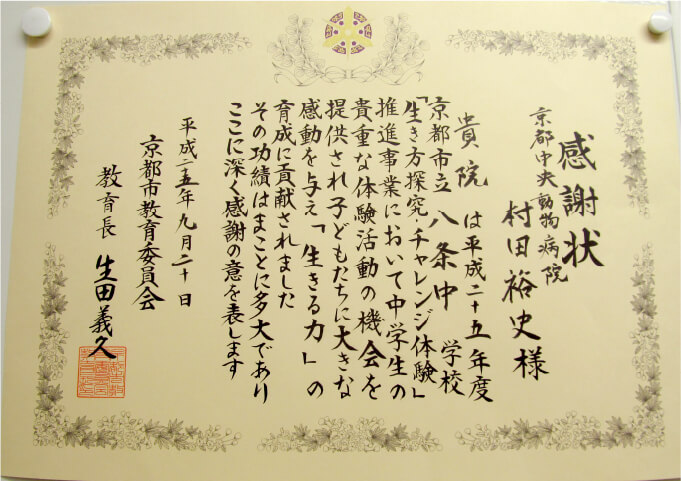 感謝状
京都中央動物病院
村田裕史様
貴院は平成二十五年度
京都市立八条中学校
「生き方探究・チャレンジ体験」
推進事業において中学生の
貴重な体験活動の機会を
提供され子どもたちに大きな
感動を与え「生きる力」の
育成に貢献されました
その功績はまことに多大であり
ここに深く感謝の意を表します
平成二五年九月二十日
京都市教育委員会
教育長 生田義久